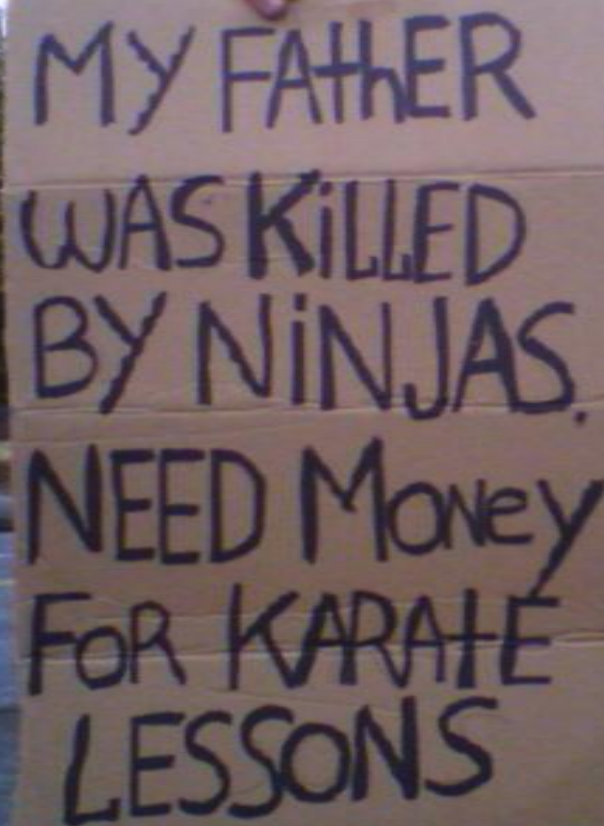 MY FAthER
WAS KiLLED
BY NiNJAS.
NEED Money
FoR KARAtE
LESSoNS